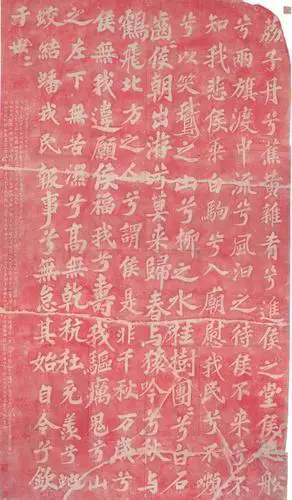 荔子丹兮蕉黄雜肴兮進侯之堂侯之船
兮兩旗渡中流兮風汩之待侯不來兮不
知我悲侯乘白駒兮入廟慰我民兮不嚬
兮以笑鵞之山兮柳之水桂樹團〻兮白石
齒〻侯朝出游兮莫來歸春与猿吟兮秋与
鶴飛北方之人兮謂侯是非千秋万歲兮
侯無我違願侯福我兮壽我驅癘鬼兮山
之左下無苦濕兮高無乾秔稌充羡兮蛇
蛟結蟠我民報事兮無怠其始自今兮欽
于世〻